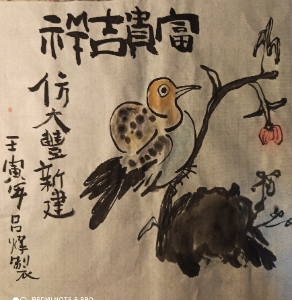 富貴吉祥
仿大豐新建
壬寅年呂燁製
REDMI NOTE 8 PRO